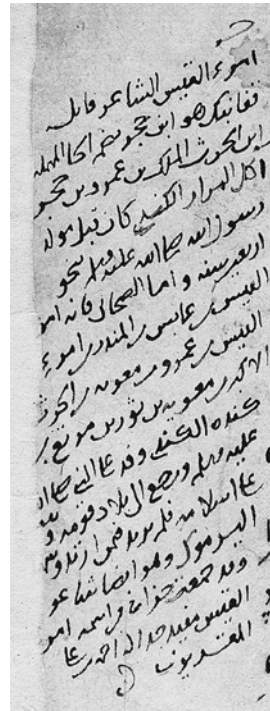 امرء القيس الشاعر قايل
قفا نبك هو ابن حجر بضم الحا المهملة
ابن الحرث الملك بن عمرو بن حجر
اكل المرار الكندي كان قبل مولد
رسول الله صلى الله عليه وسلم بنحو
اربعين سنه واما الصحابي فانه امرء
القيس بن عابس بن المنذر بن امرء
القيس بن عمرو بن معويه بن الحرث
الاكبر بن معويه بن ثور بن مرتع بن
كنده الكندي وفد على النبي صلى الله
عليه وسلم ورجع الى بلاد قومه و
على اسلامه فلم يرتد فيمن ارتد وشهد
اليرموك وهو ايضا شاعر
وقد جمعت جزا فى من اسمه امرء
القيس مفيد جدا قاله احمد بن على
المقريزي